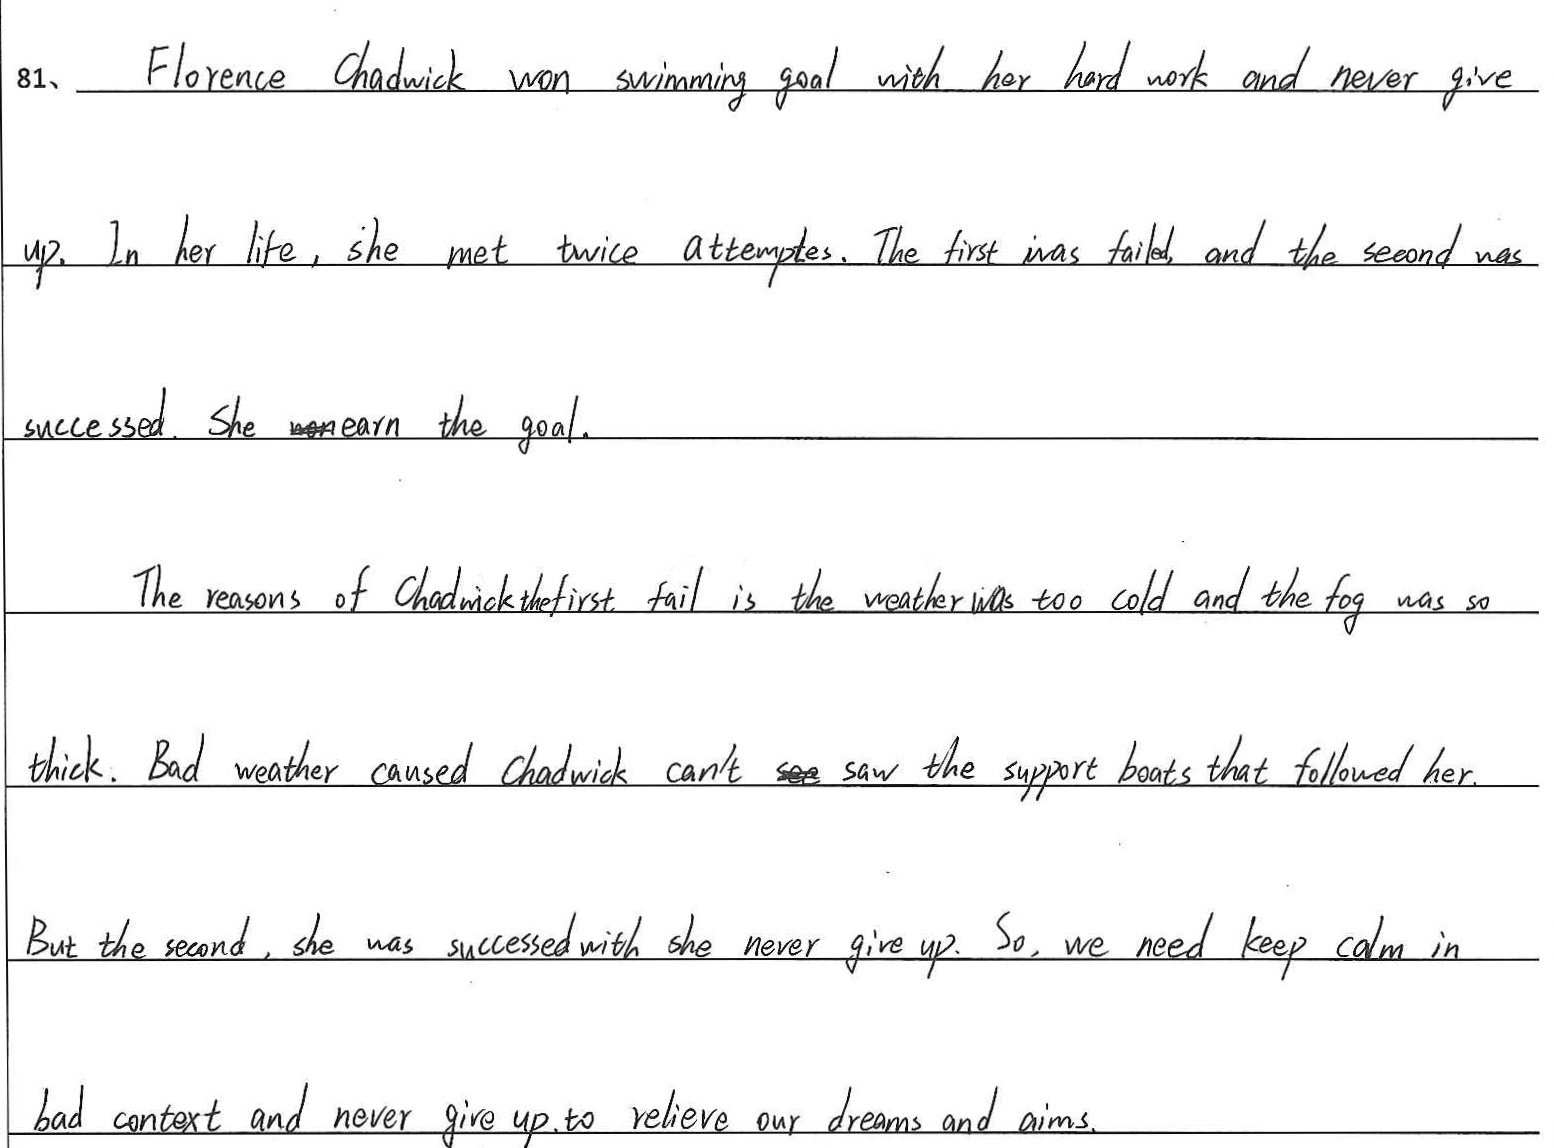 81、 Florence Chadwick won swimming goal with her hard work and never give
up. In her life, she met twice attemptes. The first was failed, and the second was
successed. She earn the goal.
The reasons of Chadwick the first fail is the weather was too cold and the fog was so
thick. Bad weather caused Chadwick can't saw the support boats that followed her.
But the second, she was successed with she never give up. So, we need keep calm in
bad context and never give up. to relieve our dreams and aims.